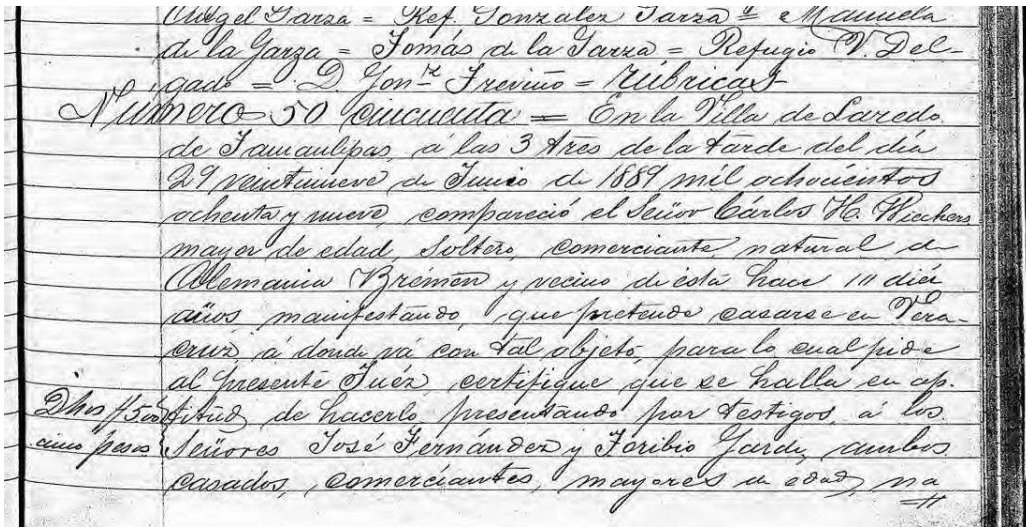 Angel Garza = Ref. Gonzalez Garza = Manuela
de la Garza = Tomás de la Garza = Refugio V. Del-
gado = D. Gonz Treviño = Rúbricas
Número 50 cincuenta = En la Villa de Laredo
de Tamaulipas, á las 3 tres de la tarde del dia
29 veintinueve de Junio de 1889 mil ochocientos
ochenta y nueve, compareció el Señor Cárlos H. Wiechers
mayor de edad, soltero, comerciante, natural de
Alemania Brémen y vecino de ésta hace 10 diéz
años, manifestando, que pretende casarse en Vera-
cruz, á donde vá con tal objeto, para lo cual pide
al presente Juéz, certifique que se halla en ap-
Dhos $500 titud de hacerlo, presentando por testigos, á los
cinco pesos Señores José Fernández y Toribio Garde, ambos
casados, comerciantes, mayores de edad, na